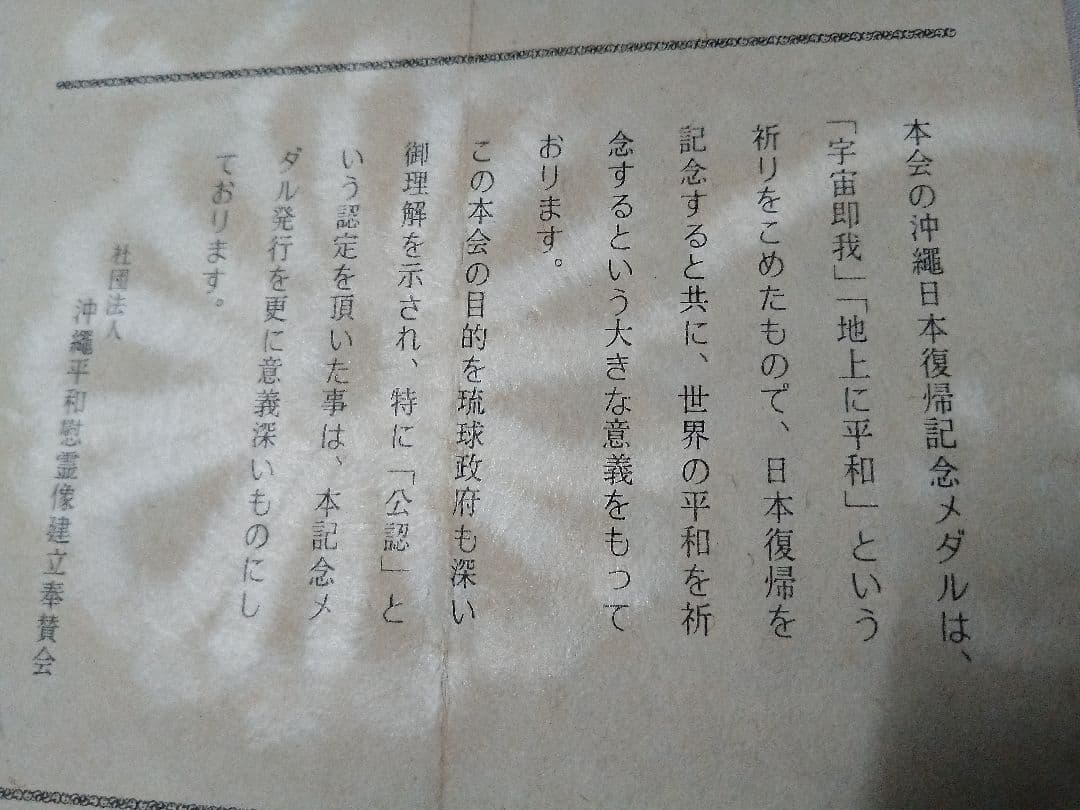 本会の沖繩日本復帰記念メダルは、
「宇宙即我」「地上に平和」という
祈りをこめたもので、日本復帰を
記念すると共に、世界の平和を祈
念するという大きな意義をもって
おります。
この本会の目的を琉球政府も深い
御理解を示され、特に「公認」と
いう認定を頂いた事は、本記念メ
ダル発行を更に意義深いものにし
ております。
社團法人
沖繩平和慰霊像建立奉賛会